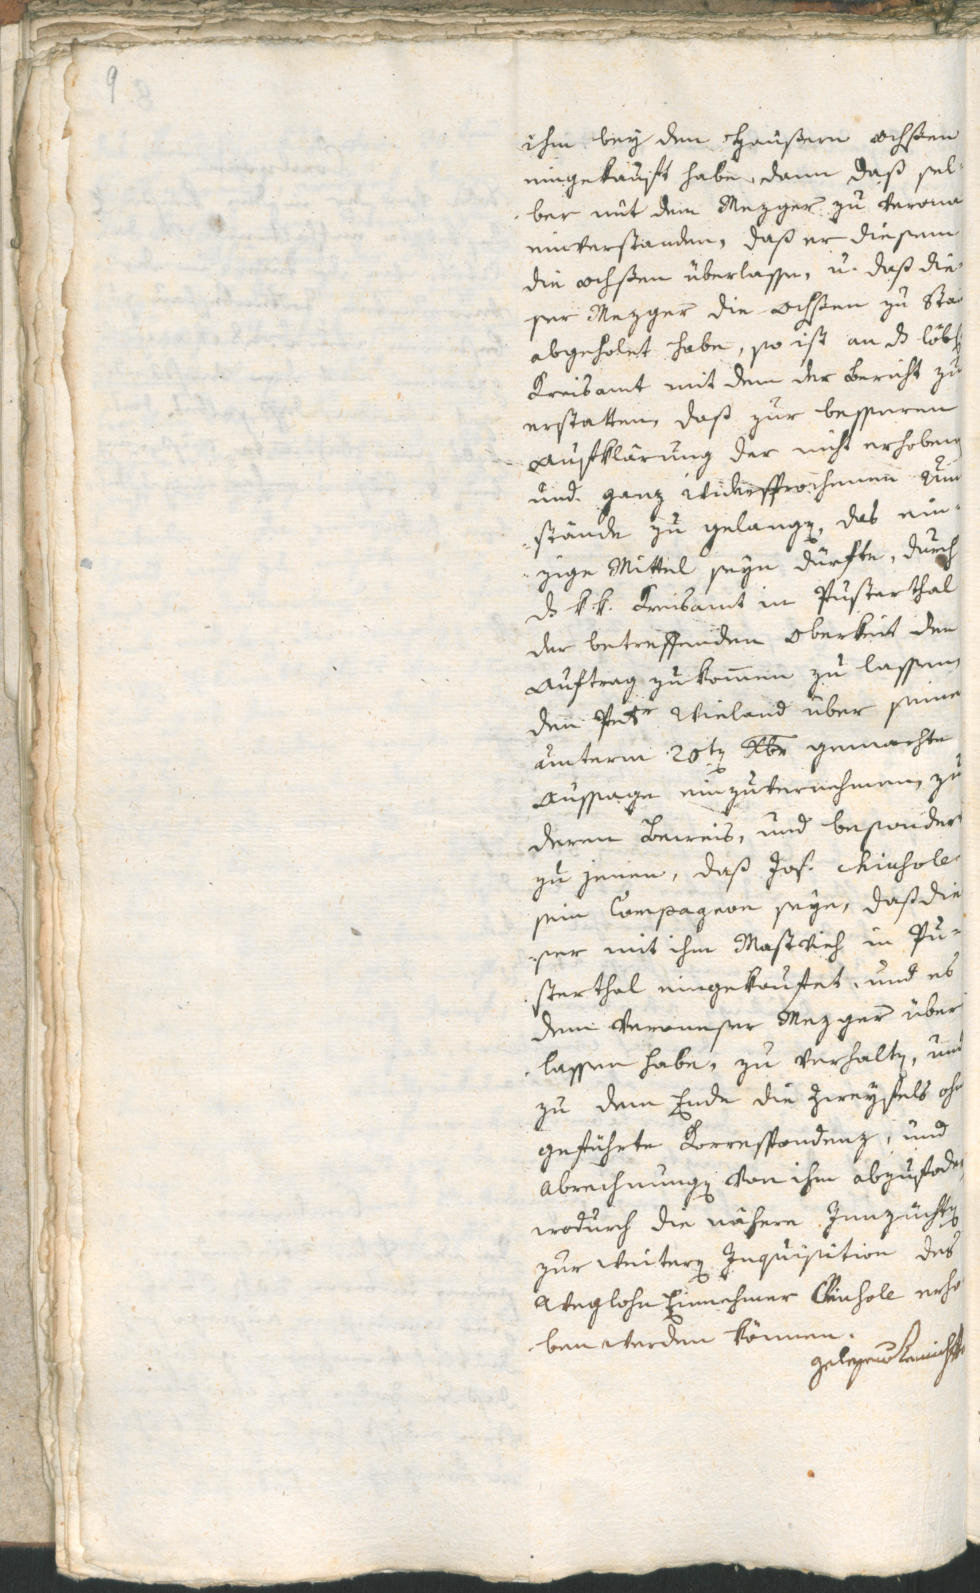 9
ihm bey den Häusern Ochsen
eingekauft habe, dann daß sel-
ber mit dem Mezger zu Verona
einverstanden, daß er diesem
die Ochsen überlasse, u. daß die-
ser Mezger die Ochsen zu
abgeholet habe, so ist an d löbl
Kreisamt mit dem der Bericht zu
erstatten, daß zur besseren
Aufklärung der nicht erhoben
und ganz widersprochenen Um
stände zu gelangen, das ein-
zige Mittel seyn dürfte, durch
d kk. Kreisamt in Pusterthal
der betreffenden Oberkeit den
Auftrag zukommen zu lassen,
den Petr Wieland über seine
unterm 20ten Xbr gemachte
Aussage einzuvernehmen, zu
deren Beweis, und besonder
zu jenen, daß Jos. Chiusole
sein Compagnon seye, daß die
ser mit ihm Mastvieh in Pu-
sterthal eingekaufet, und es
dem Veroneser Mezger über
lassen habe, zu verhalten, und
zu dem Ende die Zweyfels ohn
geführte Korrespondenz, und
Abrechnungen von ihm abzufoder
wodurch die nähere Innzüchten
zur weitern Inquisition des
Weglohn Einnehmer Chiusole erho
ben werden können.